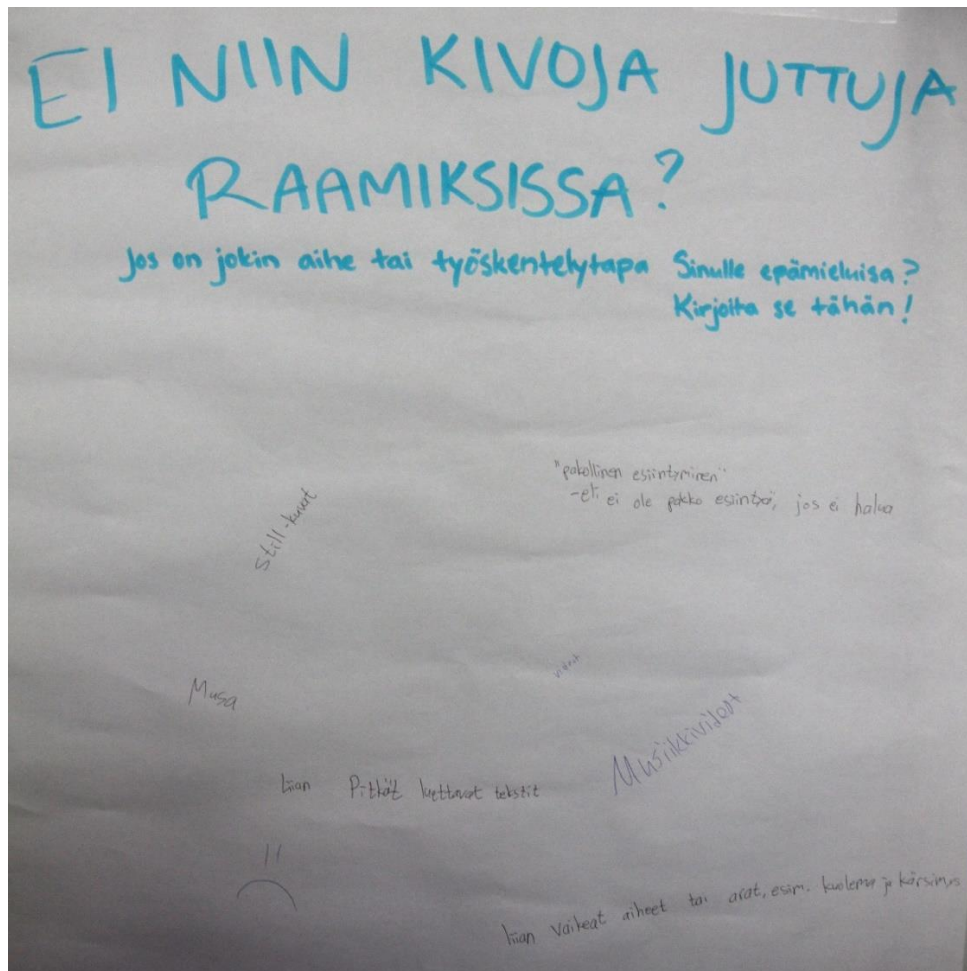 EI NIIN KIVOJA JUTTUJA
RAAMIKSISSA?
Jos on jokin aihe tai työskentelytapa Sinulle epämieluisa?
Kirjoita se tähän!
"pakollinen esiintyminen"
-et ei ole pakko esiintyä, jos ei halua
still-kuvat
Musa
Musiikkivideot
liian Pitkät luettavat tekstit
liian vaikeat aiheet tai arat, esim. kuolema ja kärsimys